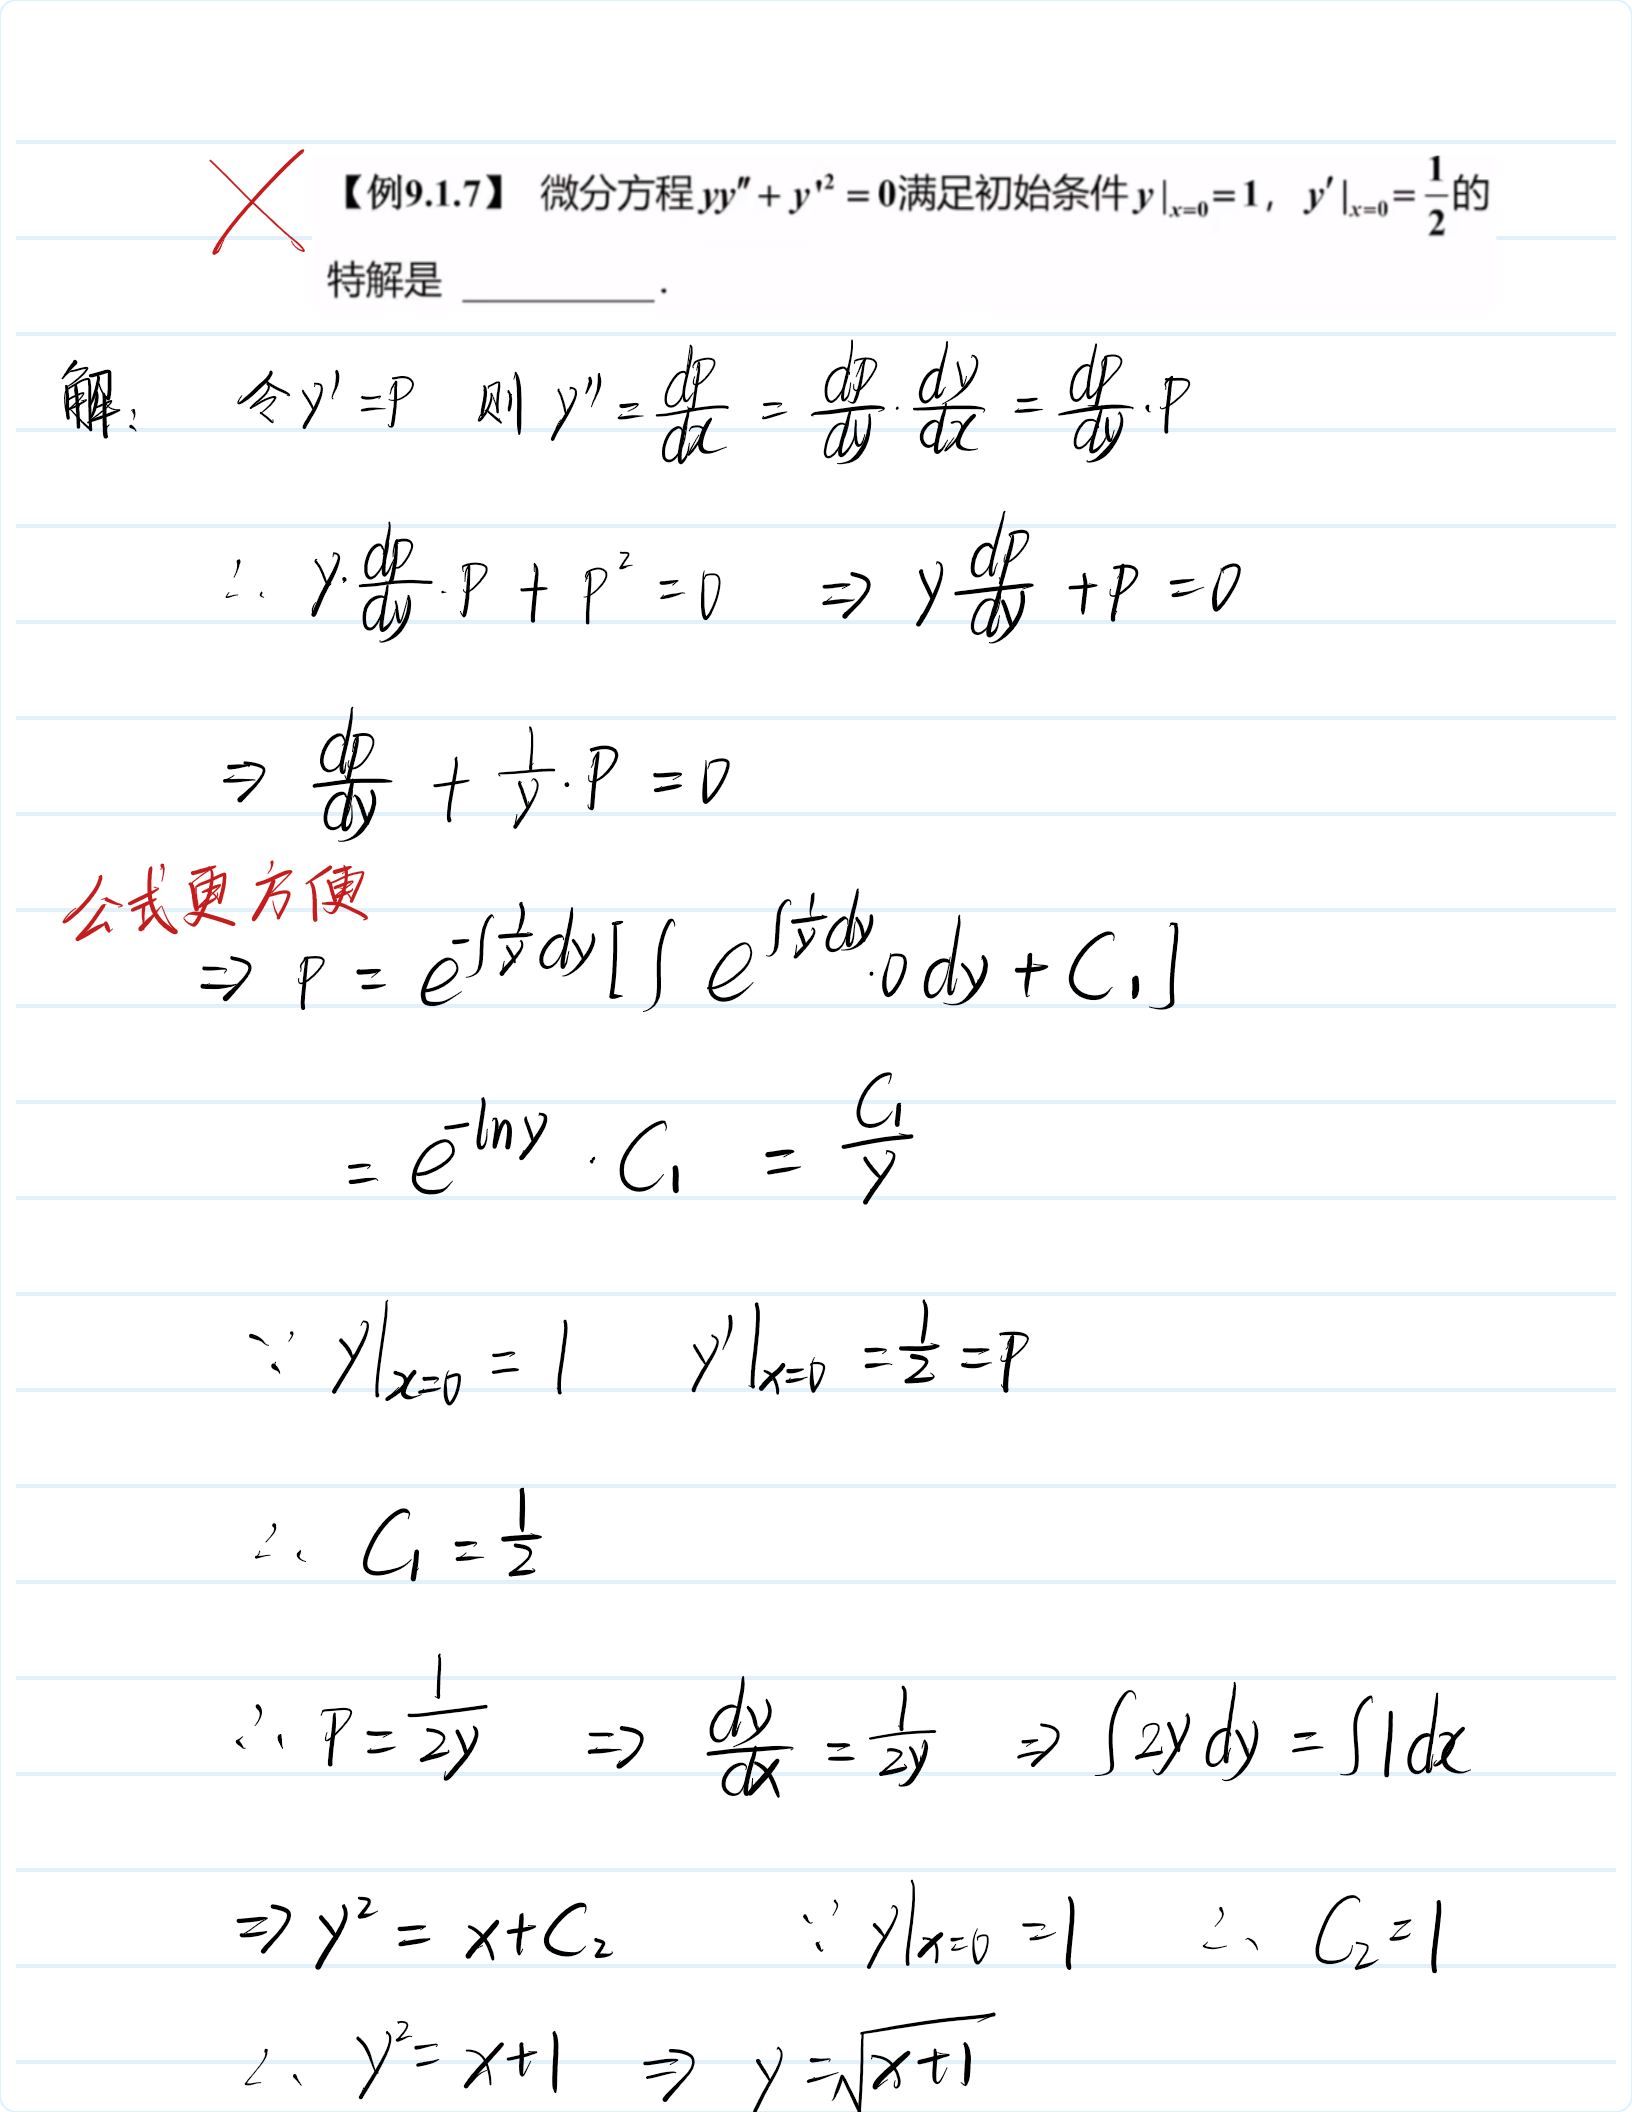 【例9.1.7】 微分方程yy″+y′²=0满足初始条件y|ₓ₌₀=1，y′|ₓ₌₀=1/2的
特解是 ________.
解: 令y′=P 则 y″=dp/dx = dp/dy · dy/dx = dp/dy · P
∴ y·dp/dy·P + P² = 0 ⇒ y dp/dy + P = 0
⇒ dp/dy + 1/y · P = 0
公式更方便
⇒ P = e^(-∫1/y dy) [∫ e^(∫1/y dy) · 0 dy + C₁]
= e^(-lny) · C₁ = C₁/y
∵ y|ₓ₌₀ = 1 y′|ₓ₌₀ = 1/2 = P
∴ C₁ = 1/2
∴ P = 1/2y ⇒ dy/dx = 1/2y ⇒ ∫2y dy = ∫1dx
⇒ y² = x+C₂ ∵ y|ₓ₌₀ = 1 ∴ C₂ = 1
∴ y² = x+1 ⇒ y = √(x+1)